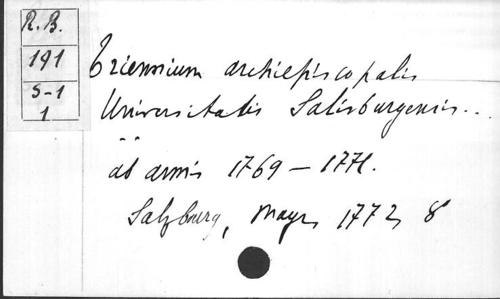 R.B.
191
S-1
1
Triennium archiepiscopalis
Universitatis Salisburgensis..
..
ab annis 1769 – 1771.
Salzburg, Mayr 1772, 8°